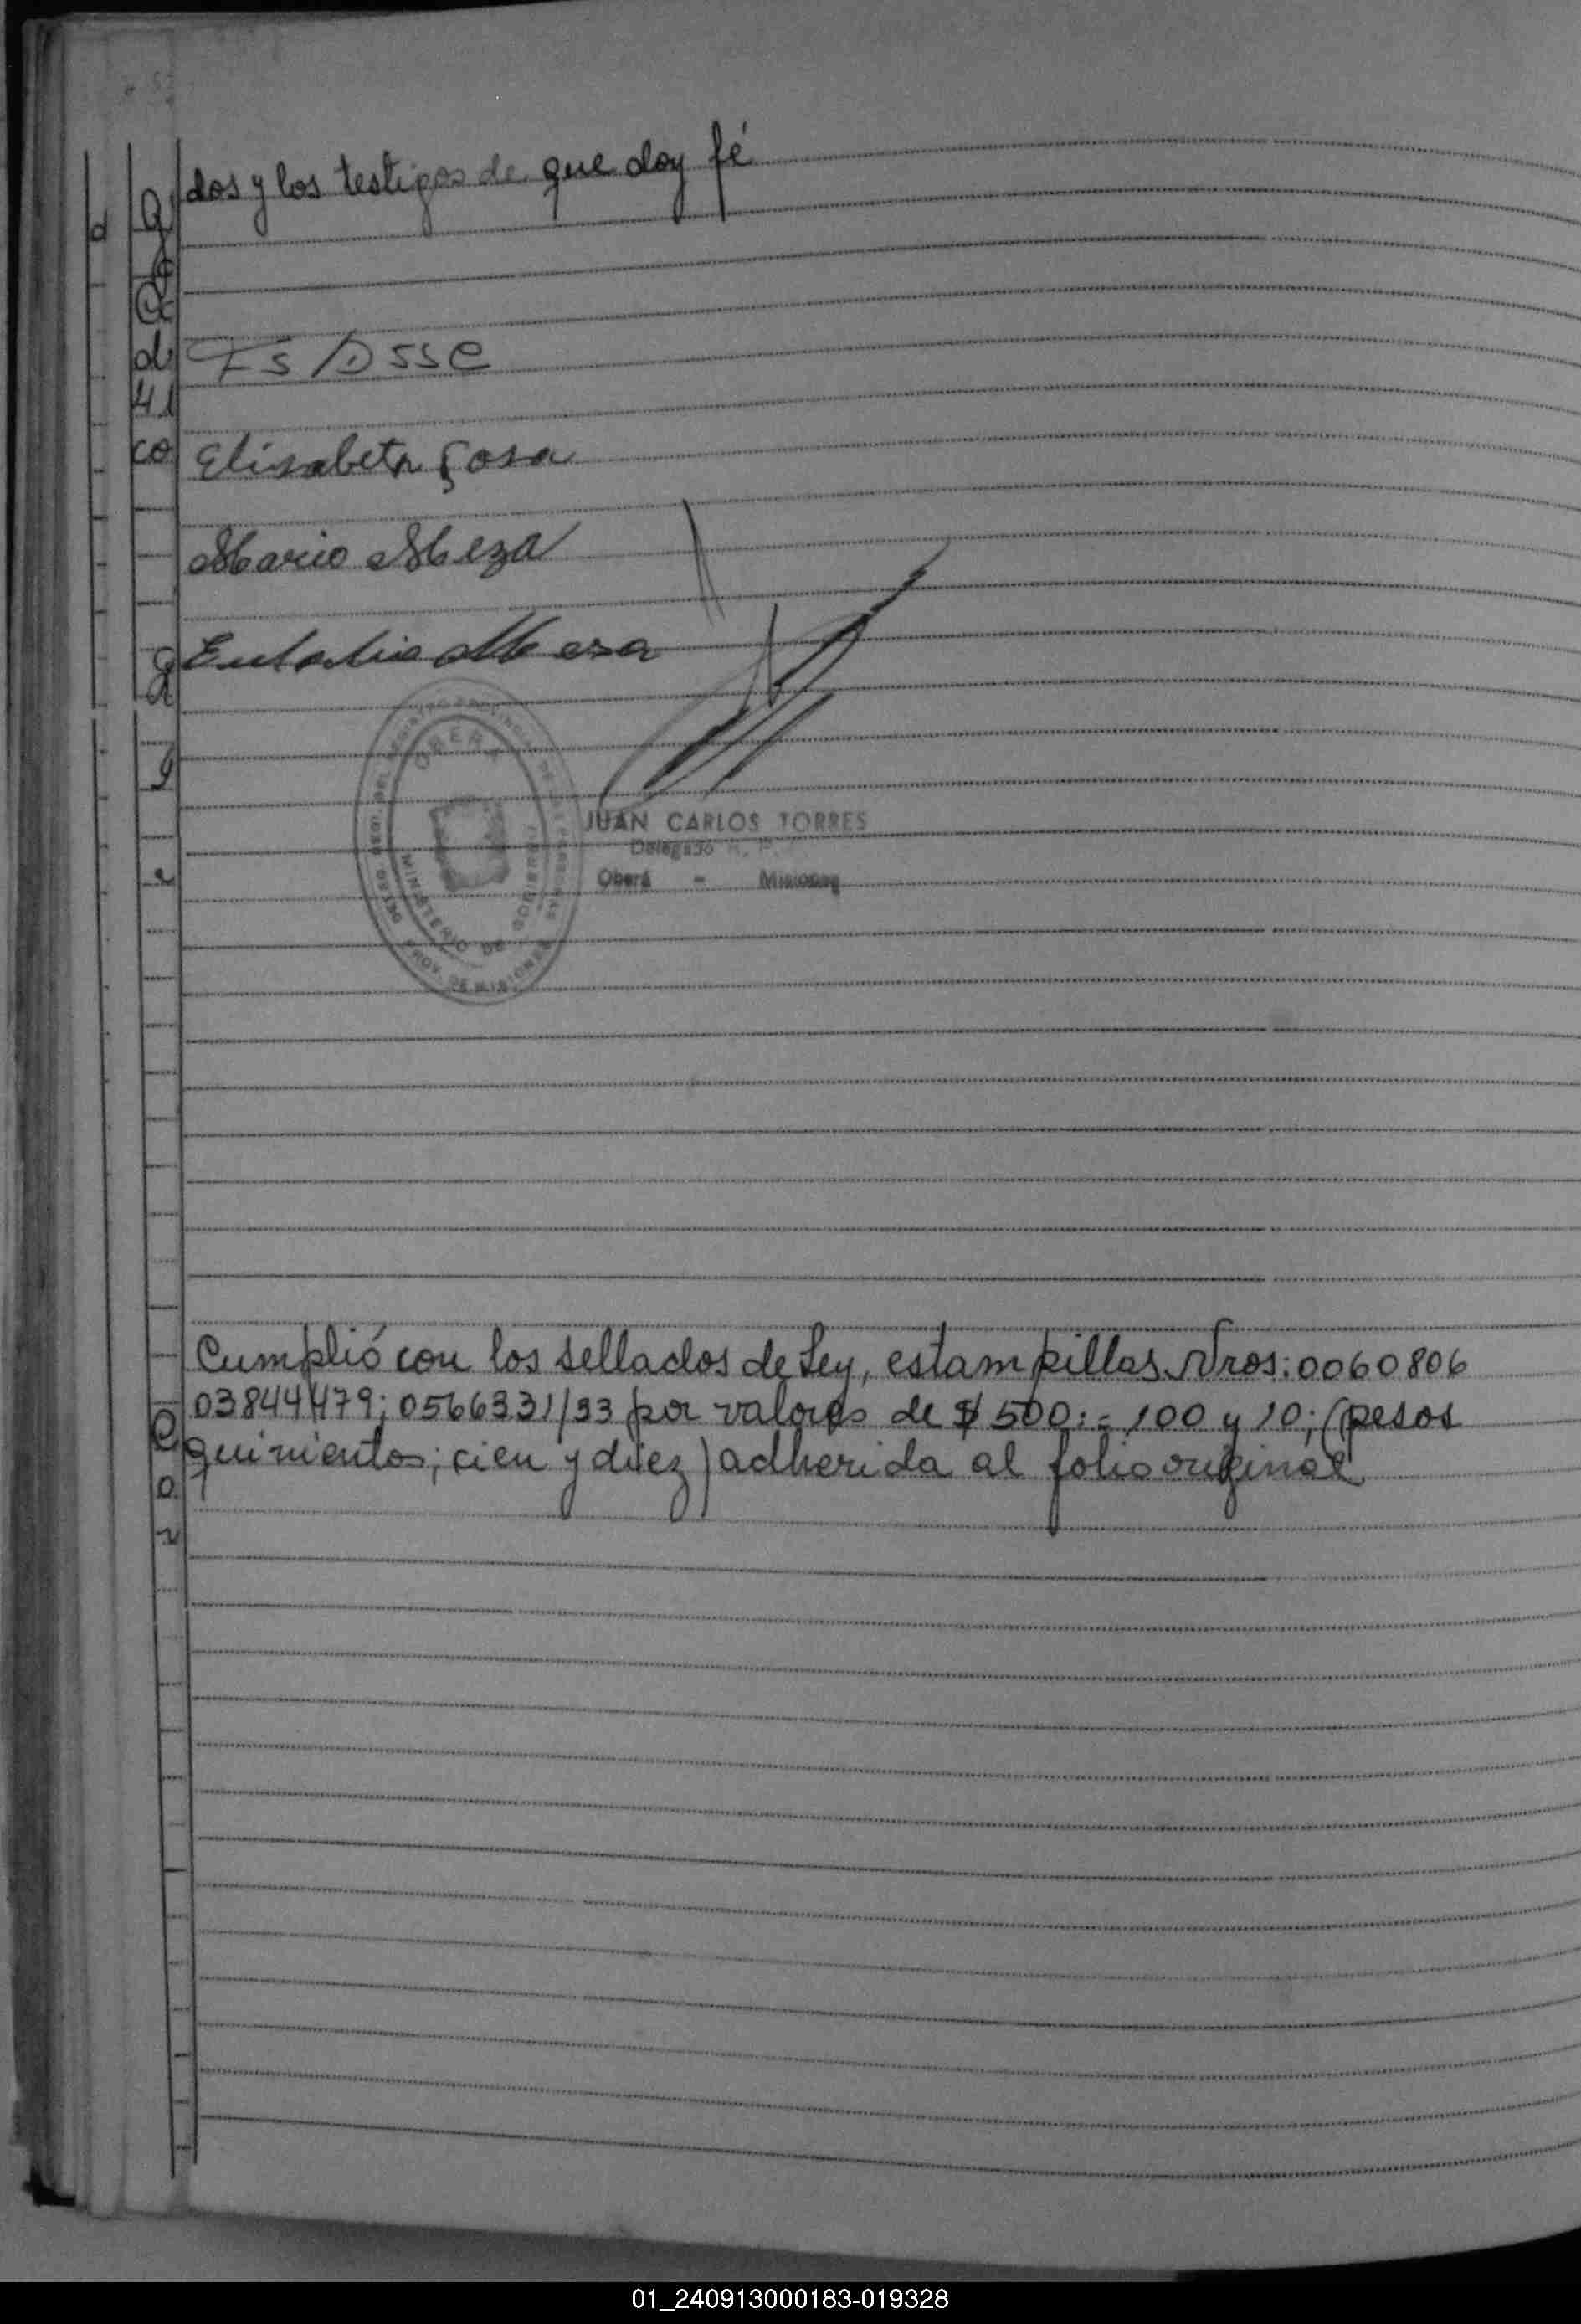 dos y los testigos de que doy fé
Elisabeta Sosa
Mario Meza
Eulalia Meza
OBERA
MINISTERIO DE GOBIERNO
PROV. DE MISIONES
JUAN CARLOS TORRES
Delegado R. P.
Oberá - Misiones
Cumplió con los sellados de Ley, estampillas Nros: 0060806
03844479; 0566331/33 por valores de $ 500:= 100 y 10; (pesos
quinientos; cien y diez) adherida al folio original
01_240913000183-019328